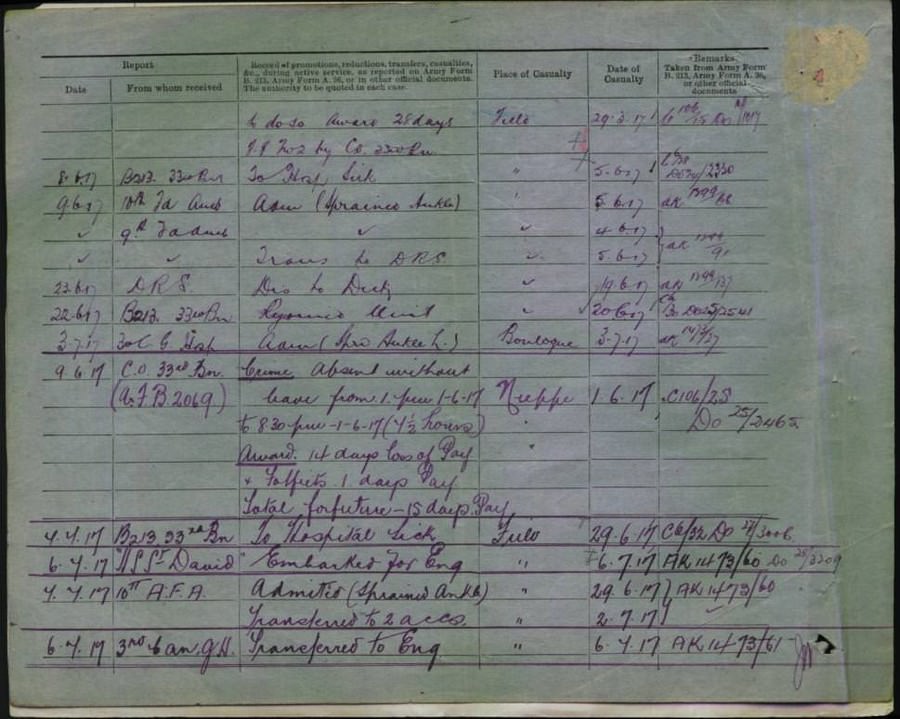 Report
Record of promotions, reductions, transfers, casualties, &c., during active service, as reported on Army Form B. 213, Army Form A. 36, or in other official documents. The authority to be quoted in each case.
Place of Casualty
Date of Casualty
Remarks Taken from Army Form B. 213, Army Form A. 36, or other official documents
Date From whom received
to do so Award 28 days Field 29.3.17
F.P. No 2 by Co. 33rd Bn
8.6.17 B213. 33rd Bn To Hosp Sick " 5.6.17
9.6.17 10th Fd Amb Adm (Sprained Ankle) " 5.6.17 AK 1399/88
" 9th Fd Amb " " 4.6.17
" " Trans to DRS. " 5.6.17
23.6.17 DRS. Dis to Duty " 19.6.17
22.6.17 B213. 33rd Bn Rejoined Unit " 20.6.17
3.7.17 G. Hsp Adm (Spr Ankle L.) Boulogne 3.7.17
9.6.17 C.O. 33rd Bn. Crime Absent without
(A.F.B. 2069) leave from 1. pm 1-6-17 Nieppe 1.6.17 C106/28
to 8.30 pm - 1-6-17 (7½ hours) " Do 25/2465
Award. 14 days loss of Pay "
+ Forfeits 1 days Pay
Total forfeiture - 15 days Pay
4.7.17 B213 33rd Bn To Hospital Sick Field 29.6.17 C6/32 Do
6.7.17 "H.S. St David" Embarked for Eng " 6.7.17 AK 1473/60 Do
4.7.17 10th A.F.A. Admitted (Sprained Ankle) " 29.6.17 AK 1473/60
Transferred to 2 accs. " 2.7.17
6.7.17 3rd Can. G.H. Transferred to Eng " 6.7.17 AK 1473/61